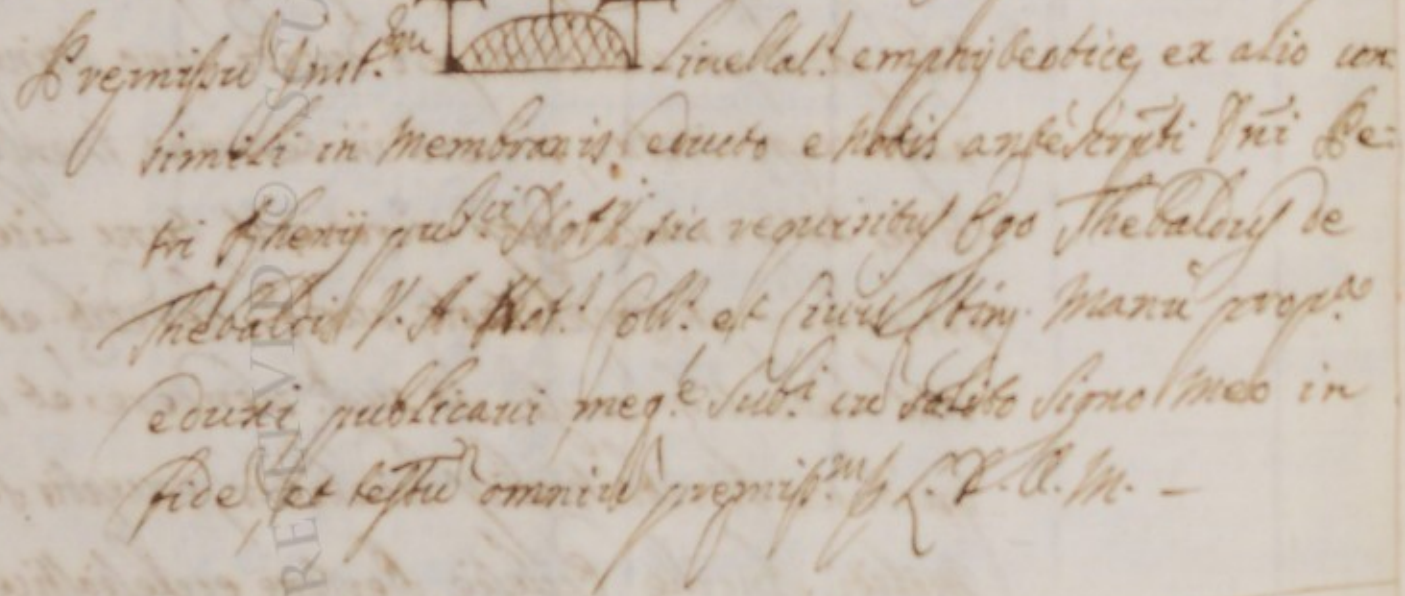 Premissu Inst.um Livellat. emphyteotice ex alio con
simili in Membranis educto e Notis antescripti Dni Pe:
tri pub.ci Not.i sic requisitus Ego Thebaldus de
Thebaldis V. A. Not. Coll. et Civis Manu prop.a
eduxi publicavi meq.e Sub.i cu solito Signo Meo in
fide et testu omniu premiss.m L. D. O. M. -